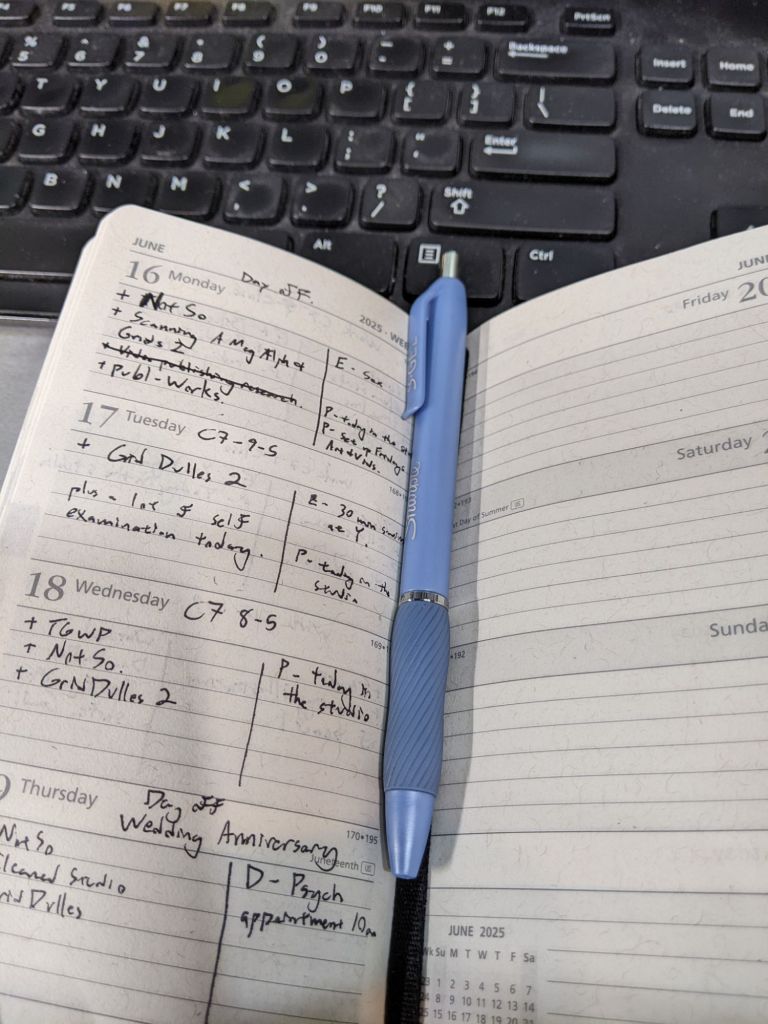 F10
F11
F12
PrtScn
%
5
^
6
&
7
*
8
(
9
)
0
_
-
+
=
Backspace
Insert
Home
T
Y
U
I
O
P
{
[
}
]
|
\
Delete
End
G
H
J
K
L
:
;
"
'
Enter
B
N
M
<
,
>
.
?
/
Shift
Alt
Ctrl
JUNE
16 Monday
Day off.
2025 · WE
+ Not So
+ Scanning A May Alph of
Grids 2
+ Publ-Works.
E - Sax
P - today in the
P - set up Friday's
17 Tuesday
C7-9-5
+ Grid Dulles 2
plus a lot of self
examination today.
E - 30 min
at Y.
P - today in the
studio
18 Wednesday
C7 8-5
+ TGWP
+ Not So.
+ Grid Dulles 2
P - today in
the studio
9 Thursday
Day off
Wedding Anniversary
170•195
Juneteenth US
Not So
Cleaned Studio
Grid Dulles
D - Psych
appointment 10am
S·GEL
Sharpie
JUN
Friday 20
Saturday
st Day of Summer US
Sunda
•192
JUNE 2025
Wk Su M T W T F Sa
23 1 2 3 4 5 6 7
24 8 9 10 11 12 13 14
25 15 16 17 18 19 20 21